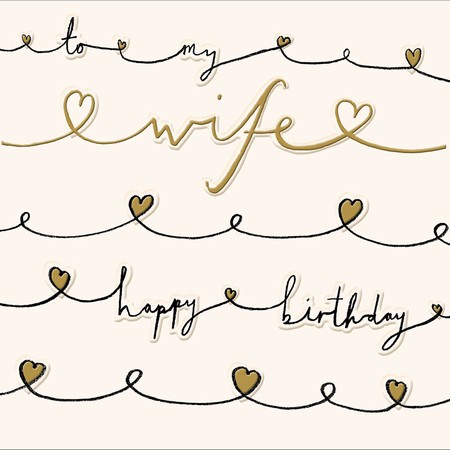 to my
wife
happy birthday